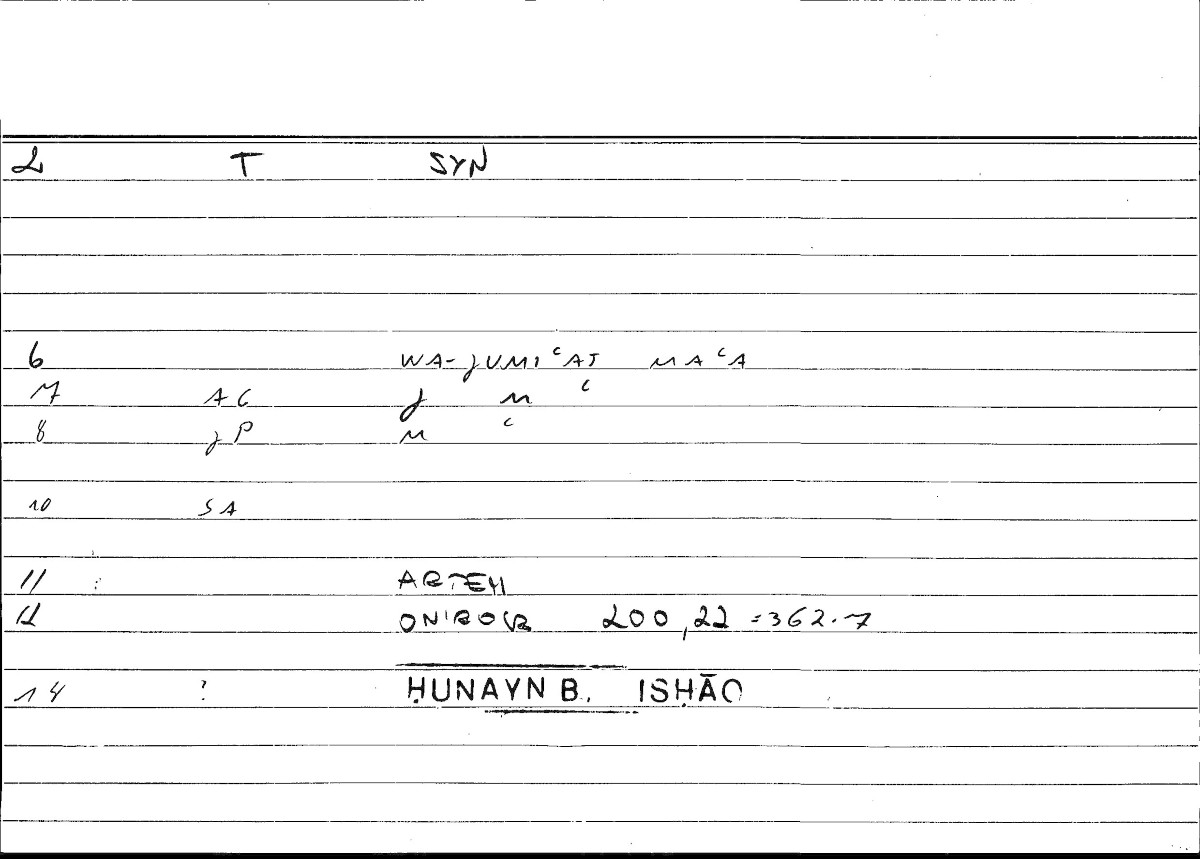 L T SYN
6 WA-JUMIᶜAT MAᶜA
7 AC J M ᶜ
8 JP M ᶜ
10 SA
11 ARTEM
12 ONIROCR 200,22 =362.7
14 ? ḤUNAYN B. ISḤĀQ